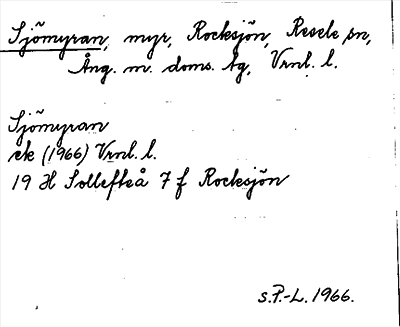 Sjömyran, myr, Rocksjön, Resele sn,
Ång. m. doms. tg, Vrnl. l.
Sjömyran
ek (1966) Vrnl. l.
19 H Sollefteå 7 f Rocksjön
s.P.-L. 1966.